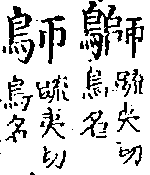 鶳
疏夷切
鳥名
鳾
疏夷切
鳥名